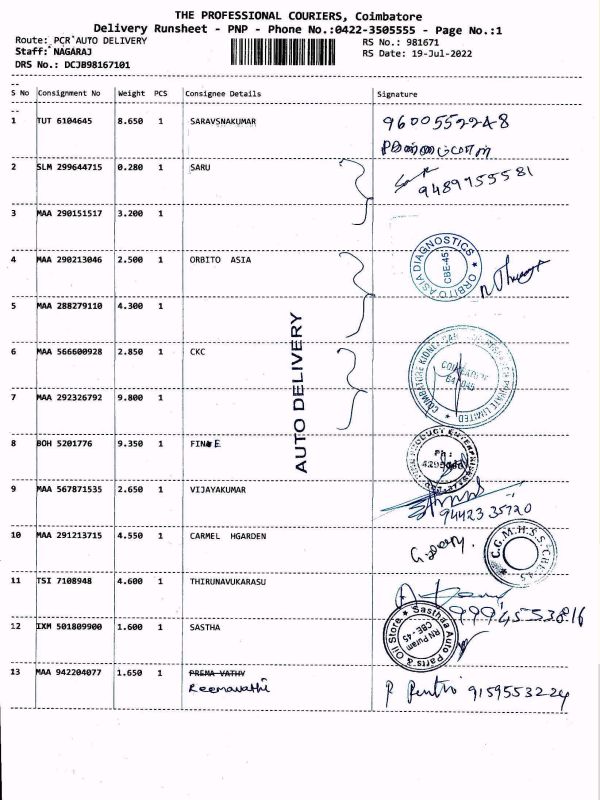 THE PROFESSIONAL COURIERS, Coimbatore
Delivery Runsheet - PNP - Phone No.:0422-3505555 - Page No.:1
Route: PCR AUTO DELIVERY RS No.: 981671
Staff: NAGARAJ RS Date: 19-Jul-2022
DRS No.: DCJB98167101
--
S No Consignment No Weight PCS Consignee Details Signature
--
1 TUT 6104645 8.650 1 SARAVSNAKUMAR 9600552248
2 SLM 299644715 0.280 1 SARU 9489755581
3 MAA 290151517 3.200 1
4 MAA 290213046 2.500 1 ORBITO ASIA
ORBITO ASIA DIAGNOSTICS
CBE-45
5 MAA 288279110 4.300 1
AUTO DELIVERY
6 MAA 566600928 2.850 1 CKC
COIMBATORE KIDNEY PRIVATE LIMITED
COIMBATORE
641 045
7 MAA 292326792 9.800 1
8 BOH 5201776 9.350 1 FINE
PRODUCT ENTERPRISES
Ph:
9 MAA 567871535 2.650 1 VIJAYAKUMAR 9442335720
10 MAA 291213715 4.550 1 CARMEL HGARDEN
C.G.M.H.S.S.
11 TSI 7108948 4.600 1 THIRUNAVUKARASU
12 IXM 501809900 1.600 1 SASTHA
Sasthaa Auto Parts & Oil Store
RN Puram
CBE-45
13 MAA 942204077 1.650 1 PREMA VATHY
Reemavathi 9159553224